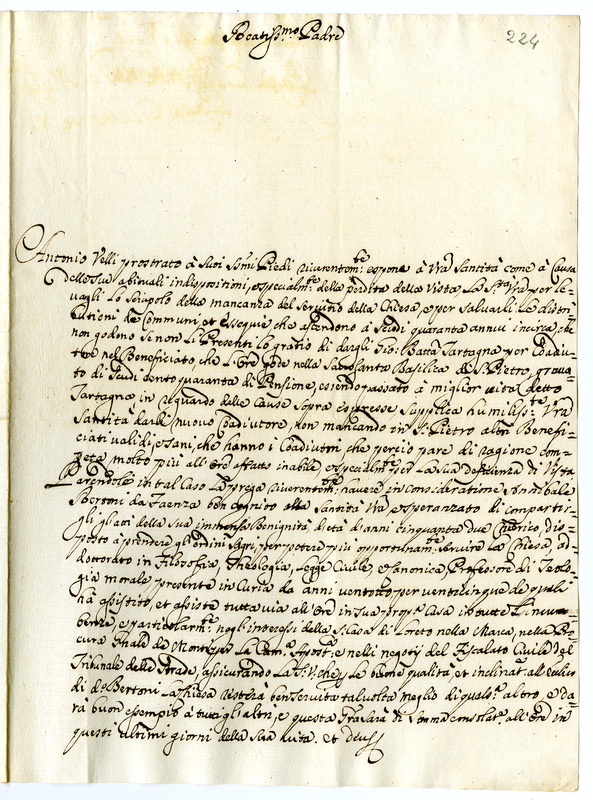 Beatiss.mo Padre
224
Antonio Velli prostrato à Suoi Ss.mi Piedi riverentem.te espone à Vrã Santità come à Causa
delle sue abituali indisposizioni, especialm.te della perdita della Vista, La S.tà Vrã per le-
uargli Lo Scrupolo della mancanza del Servizio della Chiesa, e per Salvarli Le distri-
butioni de Communi, et Essequie che ascendono à Scudi quaranta annui incirca, che
non godono Se non Li Presenti Lo gratiò di dargli Gio: Batta Tartagna per Coadiu-
tore nel Beneficiato, che L'Ore gode nella Sacrosanta Basilica di S. Pietro, grava-
to di Scudi Cento quaranta di Pensione, essendo passato à miglior vita detto
Tartagna, in riguardo delle Cause sopra espresse, Supplica humiliss.te Vrã
Santità darli nuovo Coadiutore, non mancando in S. Pietro altri Benefi-
ciati validi, e sani, che hanno i Coadiutori che perciò pare di ragione com-
peta molto più all'Ore affatto inabile, especialm.te per La sua deficienza di Vista
Parendole in tal Caso La prega riverentem.te havere in Consideratione Annibale
Bertoni da Faenza ben cognito alla Santità Vrã, e speranzato di comparti-
gli gl'atti della Sua immensa Benignità d'età d'anni cinquanta due Chierico, dis-
posto à prendere gl'ordini Sagri, per potere più opportunam.te Servire La Chiesa ad-
dottorato in Filosofia, Theologia, Legge Civile, e Canonica, Professore di Teolo-
gia morale presente in Curia da anni ventotto, per venticinque de quali
hà assistito, et assiste tutta via all'Ore in sua prop.a Casa in tutte L'incum-
benze, e particolarm.te negl'interessi della S. Casa di Loreto nella Marca, nella Pro-
cura Gñale de Monti per La Cam.a Apost.a e nelli negotij del Fiscalato Civile del
Tribunale delle Strade, assicurando La S.tà V. che p Le buone qualità, et inclinat.e all'
di d.o Bertoni La Chiesa resterà ben servita tal volta meglio di qualc.o altro, e da-
rà buon essempio à tutti gl'altri, e questa Gratia Sarà di Somma consolat.e all'Ore in
questi ultimi giorni della Sua Vita. Et Deus